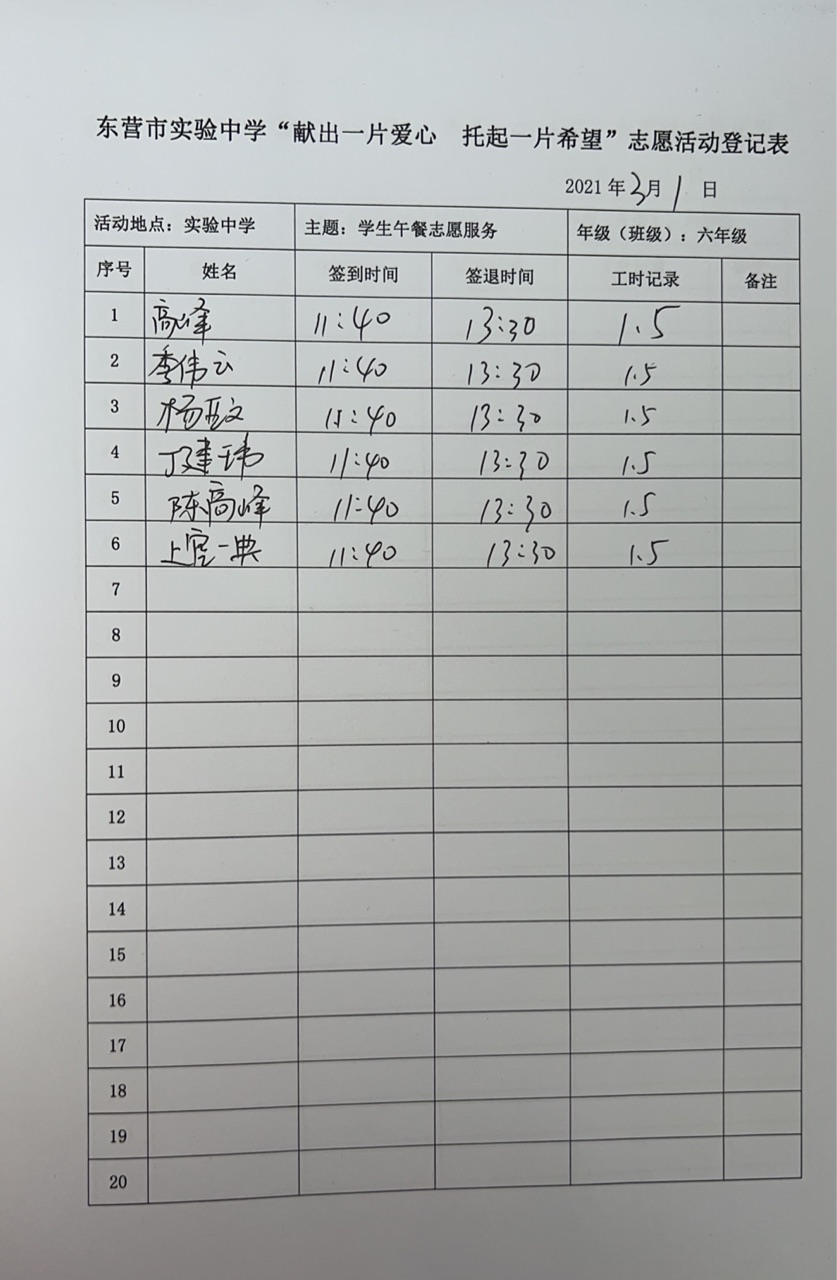 东营市实验中学“献出一片爱心 托起一片希望”志愿活动登记表
2021年3月1日
活动地点：实验中学 主题：学生午餐志愿服务 年级（班级）：六年级
序号 姓名 签到时间 签退时间 工时记录 备注
1 高峰 11:40 13:30 1.5
2 季伟云 11:40 13:30 1.5
3 杨亚文 11:40 13:30 1.5
4 丁建玮 11:40 13:30 1.5
5 陈高峰 11:40 13:30 1.5
6 上官一典 11:40 13:30 1.5
7
8
9
10
11
12
13
14
15
16
17
18
19
20